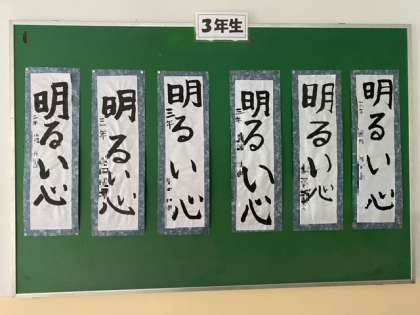 3年生
明るい心
三年
明るい心
三年
明るい心
三年
明るい心
三年
明るい心
三年
明るい心